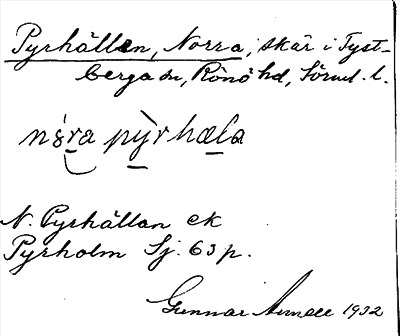 Pyrhällen, Norra, skär i Tyst-
berga sn, Rönö hd, Södml. l.
nö́ra pỳrhæla
N. Pyrhällan ek
Pyrholm Sj. 63 p.
Gunnar 1932